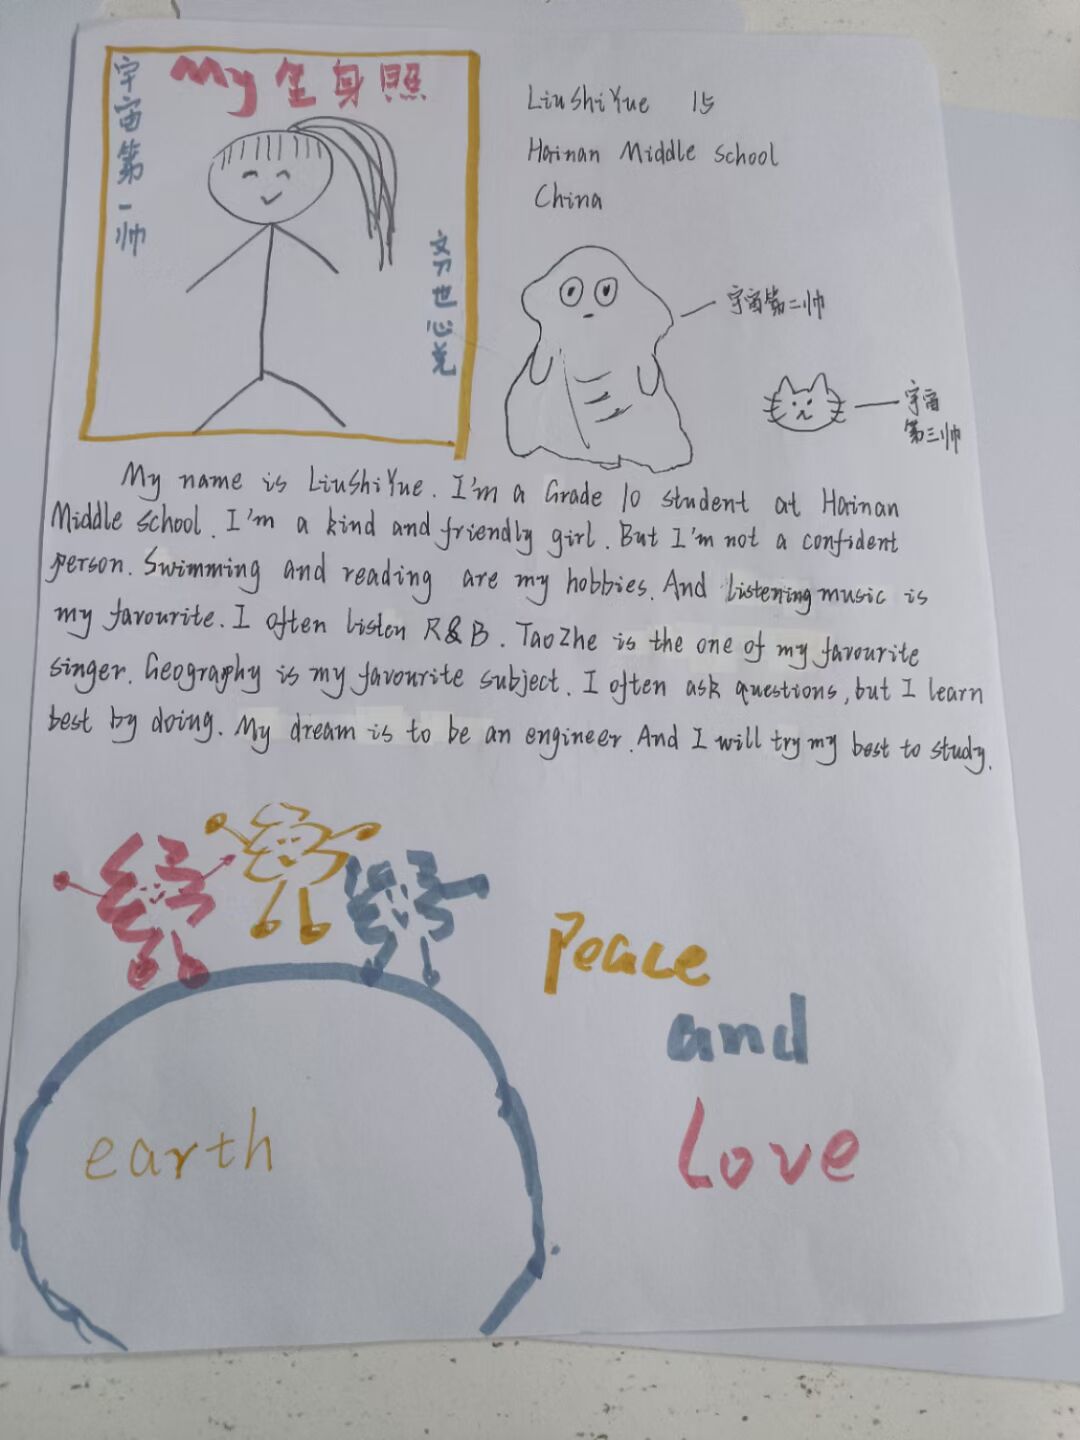 My 全身照
宇宙第一帅
刘世心兑
LiuShiYue 15
Hainan Middle school
China
宇宙第二帅
宇宙
第三帅
My name is LiuShiYue. I'm a Grade 10 student at Hainan
Middle school. I'm a kind and friendly girl. But I'm not a confident
person. Swimming and reading are my hobbies. And listening music is
my favourite. I often listen R&B. TaoZhe is the one of my favourite
singer. Geography is my favourite subject. I often ask questions, but I learn
best by doing. My dream is to be an engineer. And I will try my best to study.
Peace
and
Love
earth